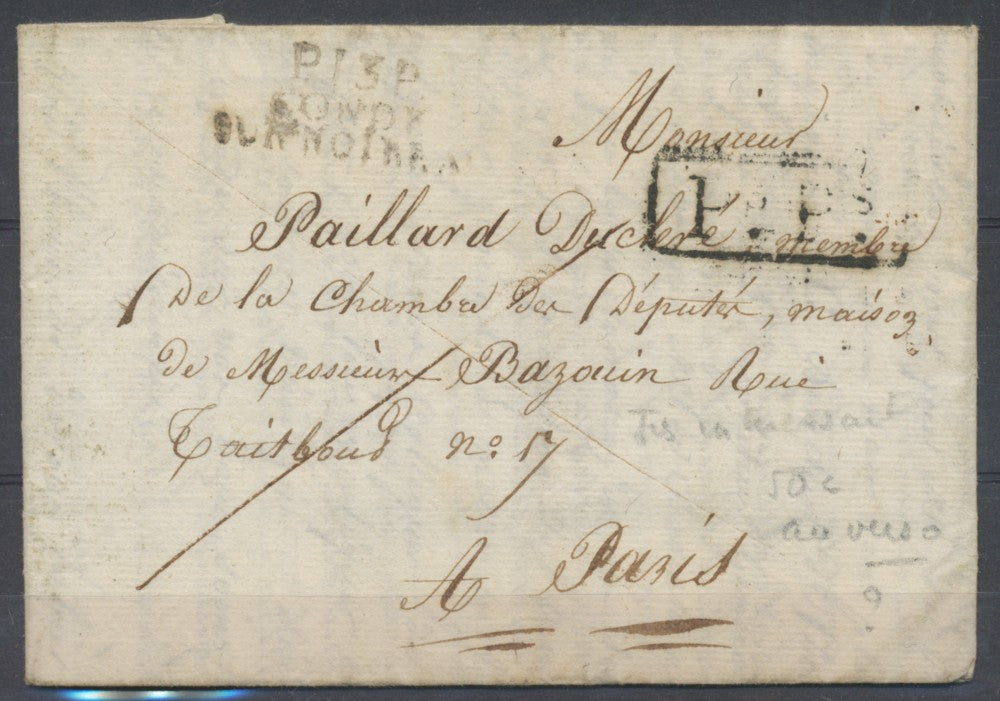 P.13.P.
CONDÉ
SUR NOIREAU
Monsieur
P.P.
Paillard Ducléré, membre
De la Chambre Des Députés, maison
de Messieurs Bazouin Rue
Taitboud no. 17
A Paris
50 c
au verso